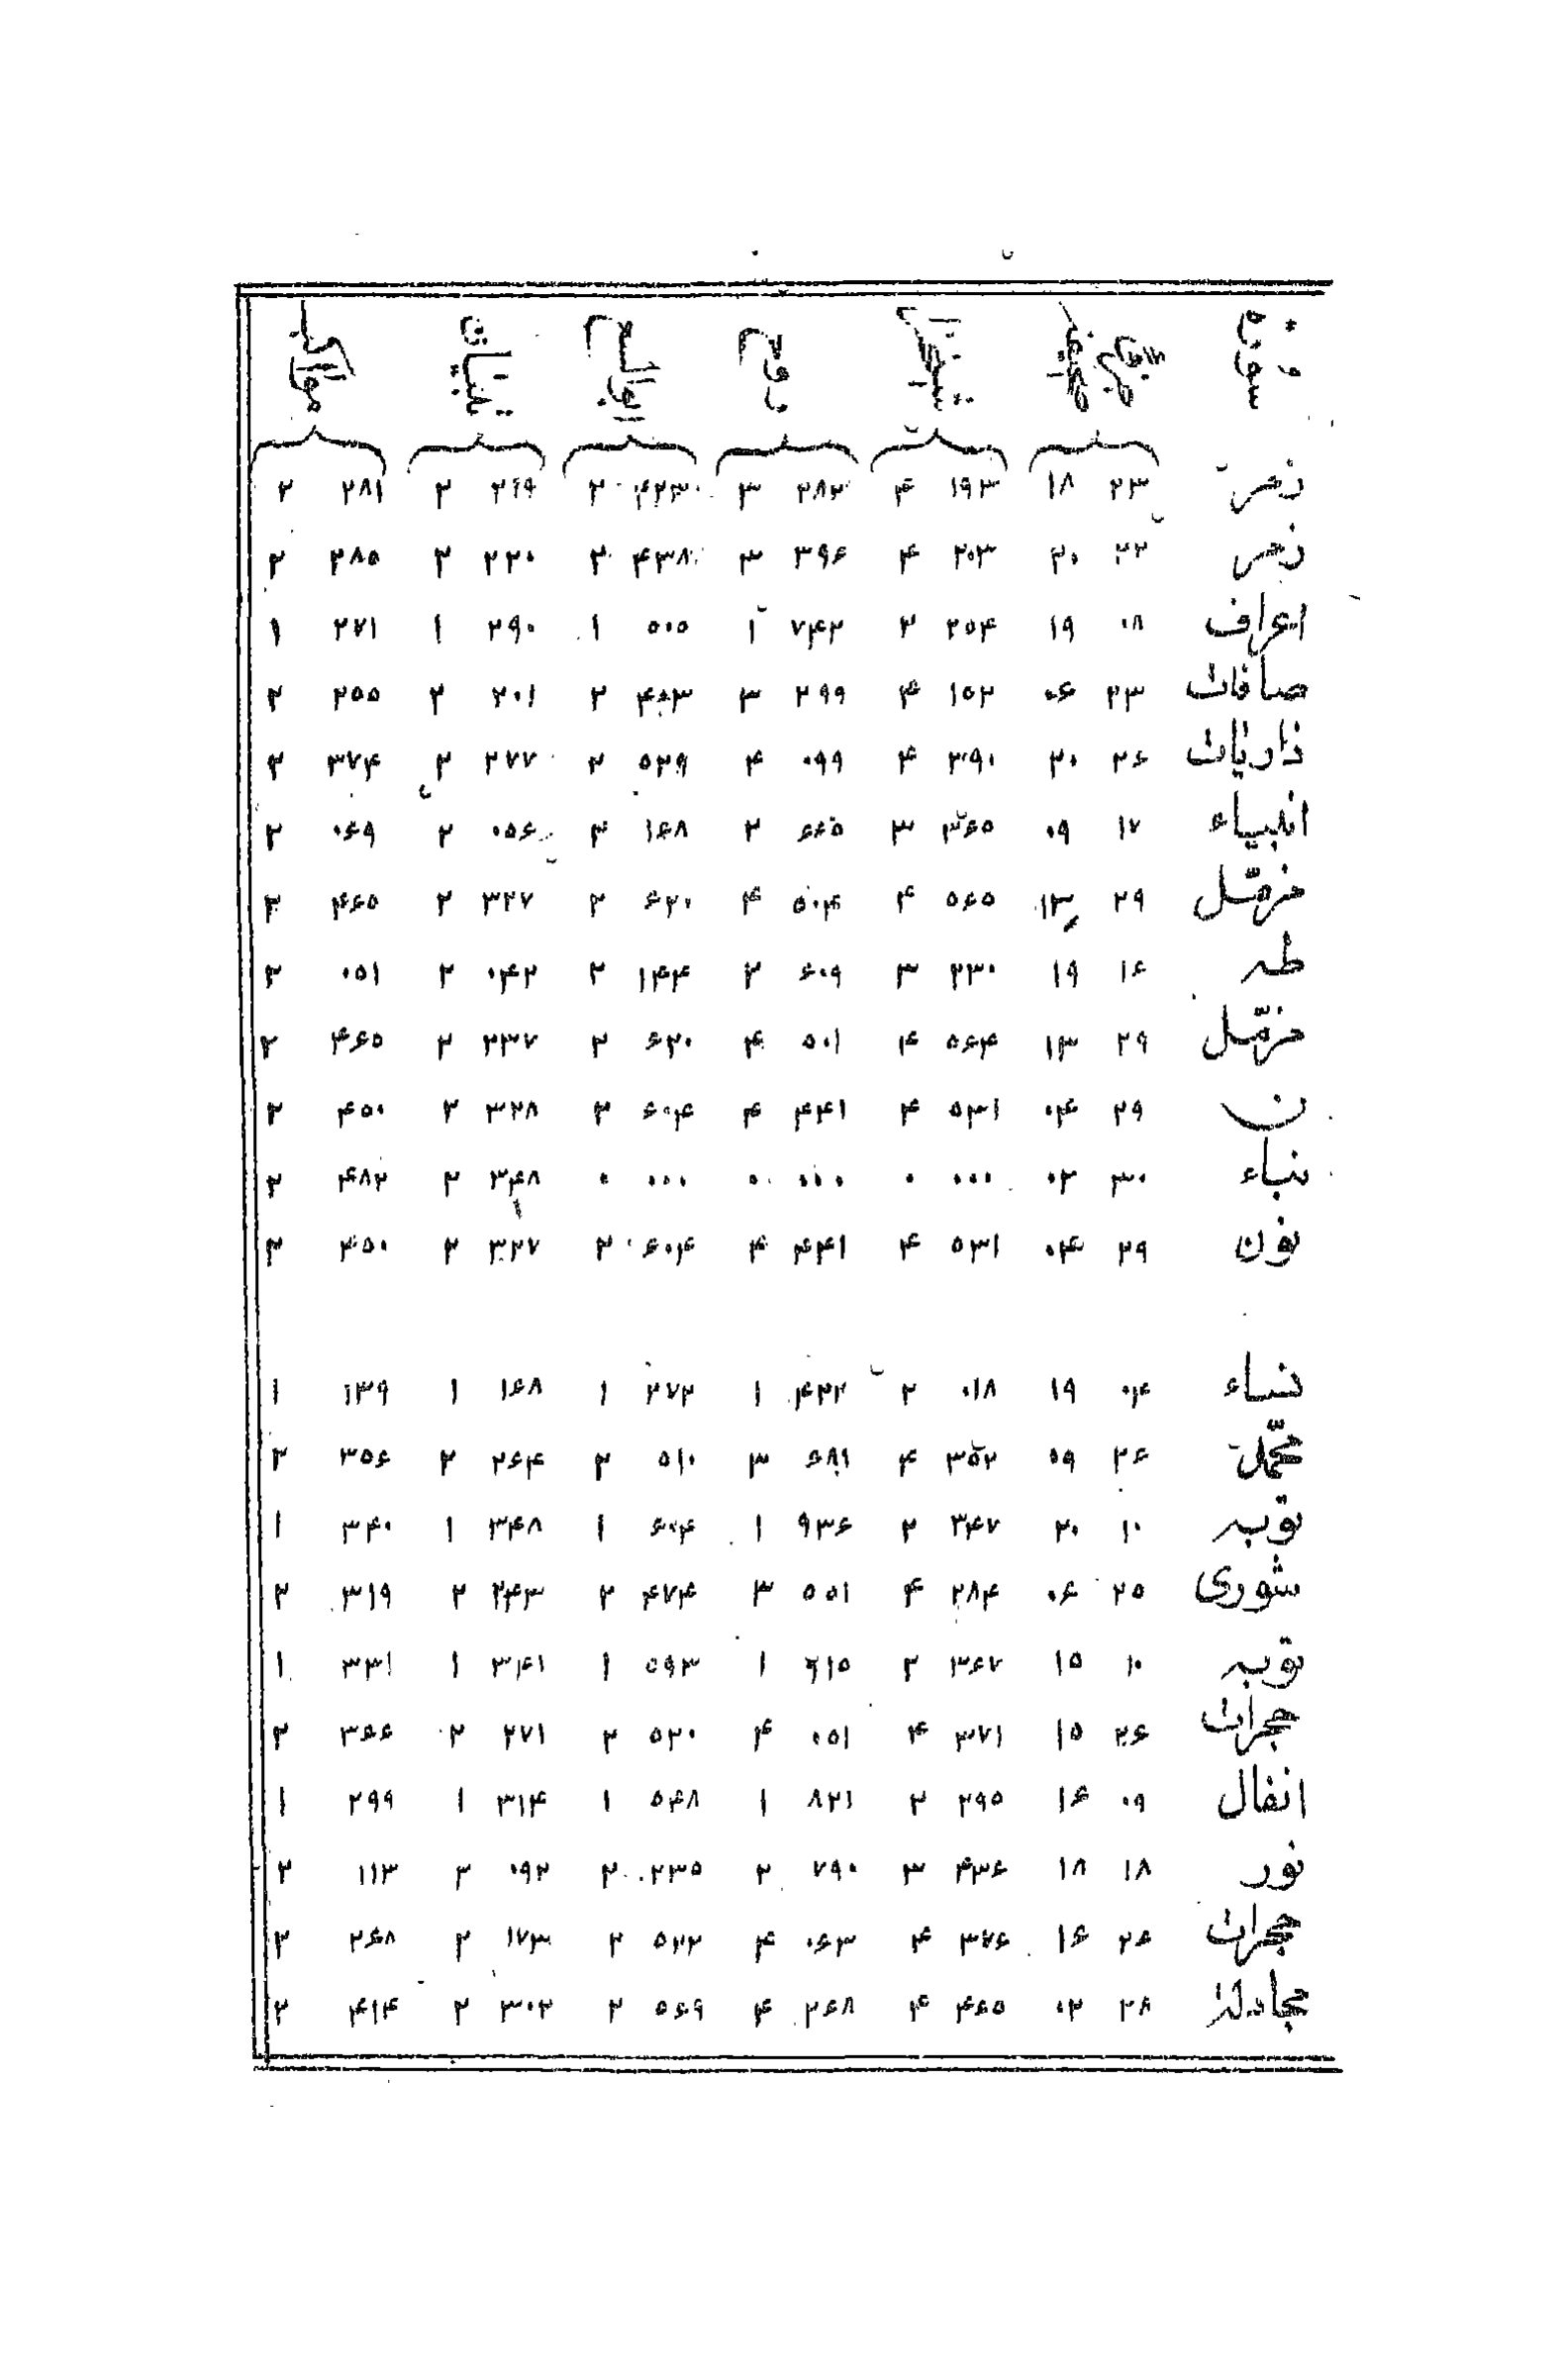 سوره
زمر ۲۳ ۱۸ ۱۹۳ ۴ ۲۸۲ ۳ ۴۲۳۰ ۲ ۲۶۹ ۲ ۲۸۱ ۲
زمر ۲۳ ۲۰ ۲۰۳ ۴ ۳۹۶ ۳ ۴۳۸ ۲ ۲۲۰ ۲ ۲۸۵ ۲
اعراف ۰۸ ۱۹ ۲۵۴ ۲ ۷۴۲ ۱ ۵۰۵ ۱ ۲۹۰ ۱ ۲۷۱ ۱
صافات ۲۳ ۰۶ ۱۵۲ ۴ ۲۹۹ ۳ ۴۰۳ ۲ ۲۰۱ ۲ ۲۵۵ ۲
ذاریات ۲۶ ۲۰ ۳۹۰ ۴ ۰۹۹ ۴ ۵۲۹ ۲ ۲۷۷ ۲ ۳۷۴ ۲
انبیاء ۱۷ ۰۹ ۳۶۵ ۳ ۶۶۵ ۲ ۱۶۸ ۲ ۰۵۶ ۲ ۰۶۹ ۲
مزمّل ۲۹ ۱۳ ۵۶۵ ۴ ۵۰۴ ۴ ۶۲۰ ۲ ۳۲۷ ۲ ۴۶۵ ۲
طه ۱۶ ۱۹ ۲۳۰ ۳ ۶۰۹ ۲ ۱۴۴ ۲ ۰۴۲ ۲ ۰۵۱ ۲
مزمّل ۲۹ ۱۳ ۵۶۴ ۴ ۵۰۱ ۴ ۶۲۰ ۲ ۳۳۷ ۲ ۴۶۵ ۲
ن ۲۹ ۰۴ ۵۳۱ ۴ ۴۴۱ ۴ ۶۰۴ ۲ ۳۲۸ ۲ ۴۵۰ ۲
نباء ۳۰ ۰۲ ۰۰۰ ۰ ۰۰۰ ۰ ۰۰۰ ۰ ۳۴۸ ۲ ۴۸۲ ۲
نون ۲۹ ۰۴ ۵۳۱ ۴ ۴۴۱ ۴ ۶۰۴ ۲ ۳۲۷ ۲ ۴۵۰ ۲
نساء ۰۴ ۱۹ ۰۱۸ ۲ ۴۲۲ ۱ ۲۷۲ ۱ ۱۶۸ ۱ ۱۳۹ ۱
محمّد ۲۶ ۰۹ ۳۵۲ ۴ ۶۸۹ ۳ ۵۱۰ ۲ ۲۶۴ ۲ ۳۵۶ ۲
توبه ۱۰ ۲۰ ۳۴۷ ۲ ۹۳۶ ۱ ۶۰۴ ۱ ۳۴۸ ۱ ۳۴۰ ۱
شوری ۲۵ ۰۶ ۲۸۴ ۴ ۵۵۱ ۳ ۴۷۴ ۲ ۲۴۳ ۲ ۳۱۹ ۲
توبه ۱۰ ۱۵ ۳۶۷ ۲ ۹۱۵ ۱ ۵۹۳ ۱ ۳۴۱ ۱ ۳۳۱ ۱
حجرات ۲۶ ۱۵ ۳۷۱ ۴ ۰۵۱ ۴ ۵۲۰ ۲ ۲۷۱ ۲ ۳۶۶ ۲
انفال ۰۹ ۱۶ ۲۹۵ ۲ ۸۲۱ ۱ ۵۴۸ ۱ ۳۱۴ ۱ ۲۹۹ ۱
نور ۱۸ ۱۸ ۴۳۶ ۳ ۷۹۰ ۲ ۲۳۵ ۲ ۰۹۲ ۲ ۱۱۳ ۲
حجرات ۲۶ ۱۶ ۳۷۶ ۴ ۰۶۳ ۴ ۵۲۲ ۲ ۱۷۳ ۲ ۲۶۸ ۲
مجادلة ۲۸ ۰۲ ۴۶۵ ۴ ۲۶۸ ۴ ۵۶۹ ۲ ۳۰۲ ۲ ۴۱۴ ۲